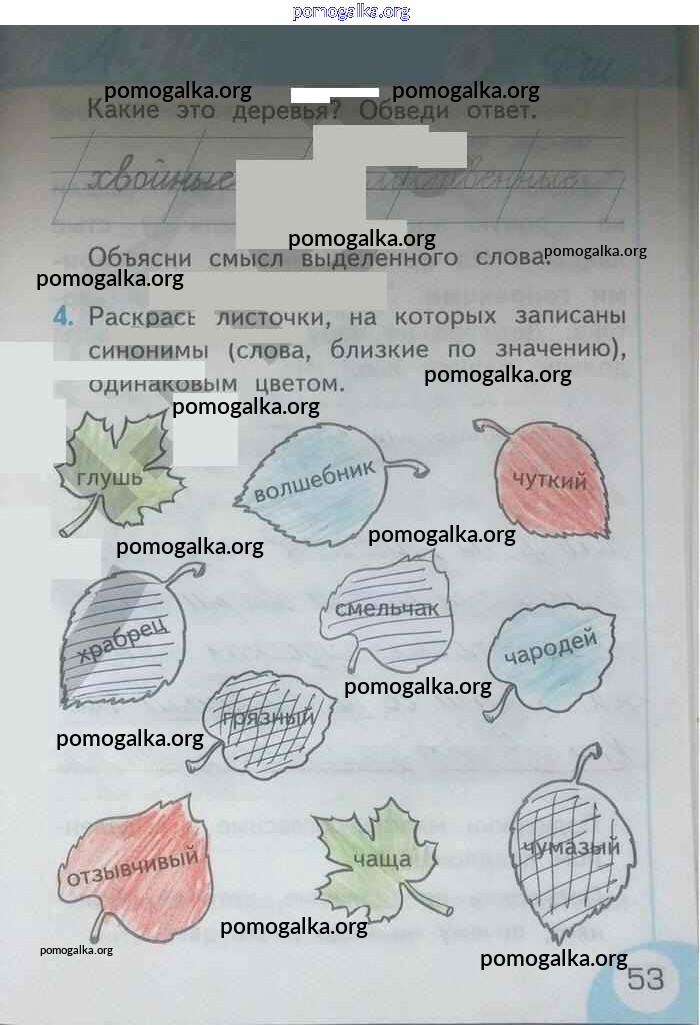 pomogalka.org
pomogalka.org pomogalka.org
Какие это деревья? Обведи ответ.
хвойные лиственные
pomogalka.org
Объясни смысл выделенного слова.
pomogalka.org
pomogalka.org
4. Раскрась листочки, на которых записаны
синонимы (слова, близкие по значению),
одинаковым цветом.
pomogalka.org
pomogalka.org
глушь волшебник чуткий
pomogalka.org
pomogalka.org
храбрец смельчак чародей
pomogalka.org
грязный
pomogalka.org
чумазый
отзывчивый чаща
pomogalka.org
pomogalka.org
pomogalka.org
53